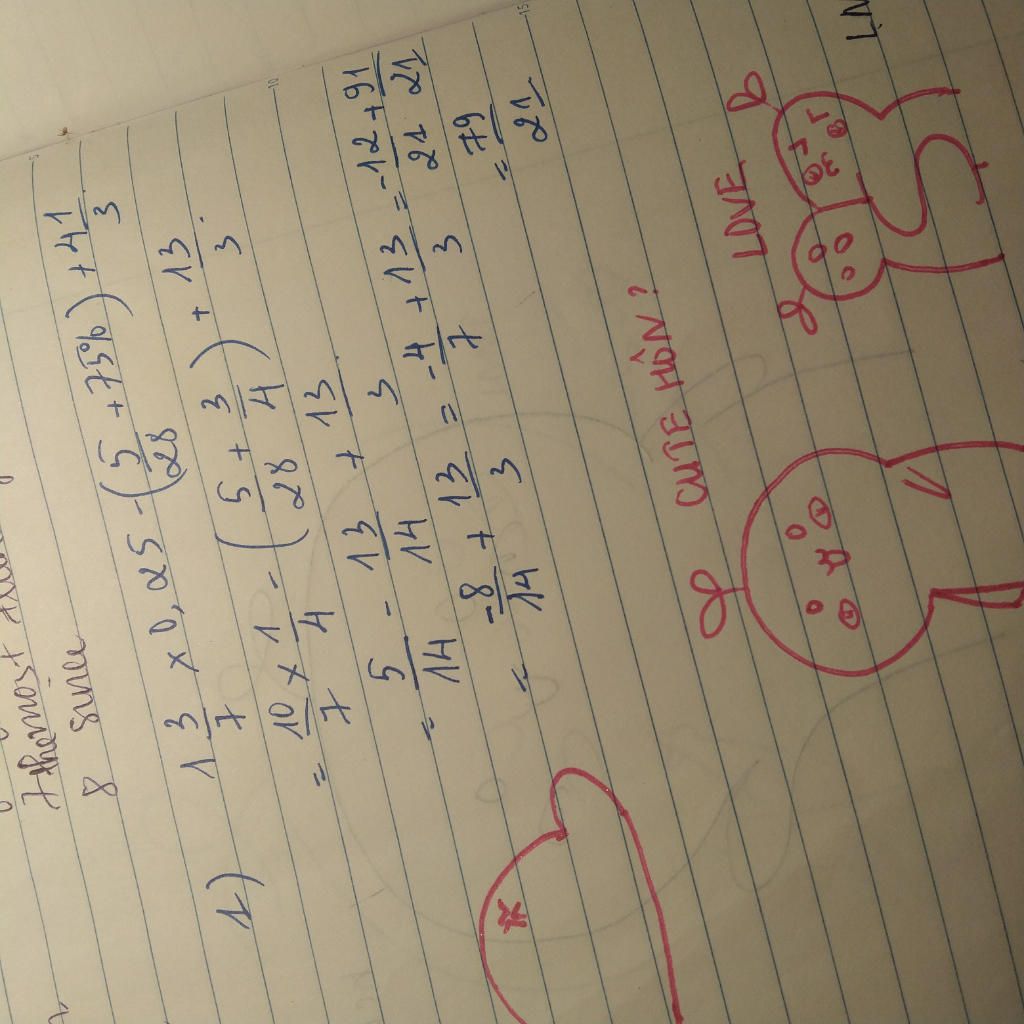 7 the most
8 since
1) 1 3/7 x 0,25 - (5/28 + 75%) + 4 1/3
= 10/7 x 1/4 - (5/28 + 3/4) + 13/3
= 5/14 - 13/14 + 13/3
= -8/14 + 13/3 = -4/7 + 13/3 = -12/21 + 91/21
= 79/21
CUTE HÔN?
LOVE